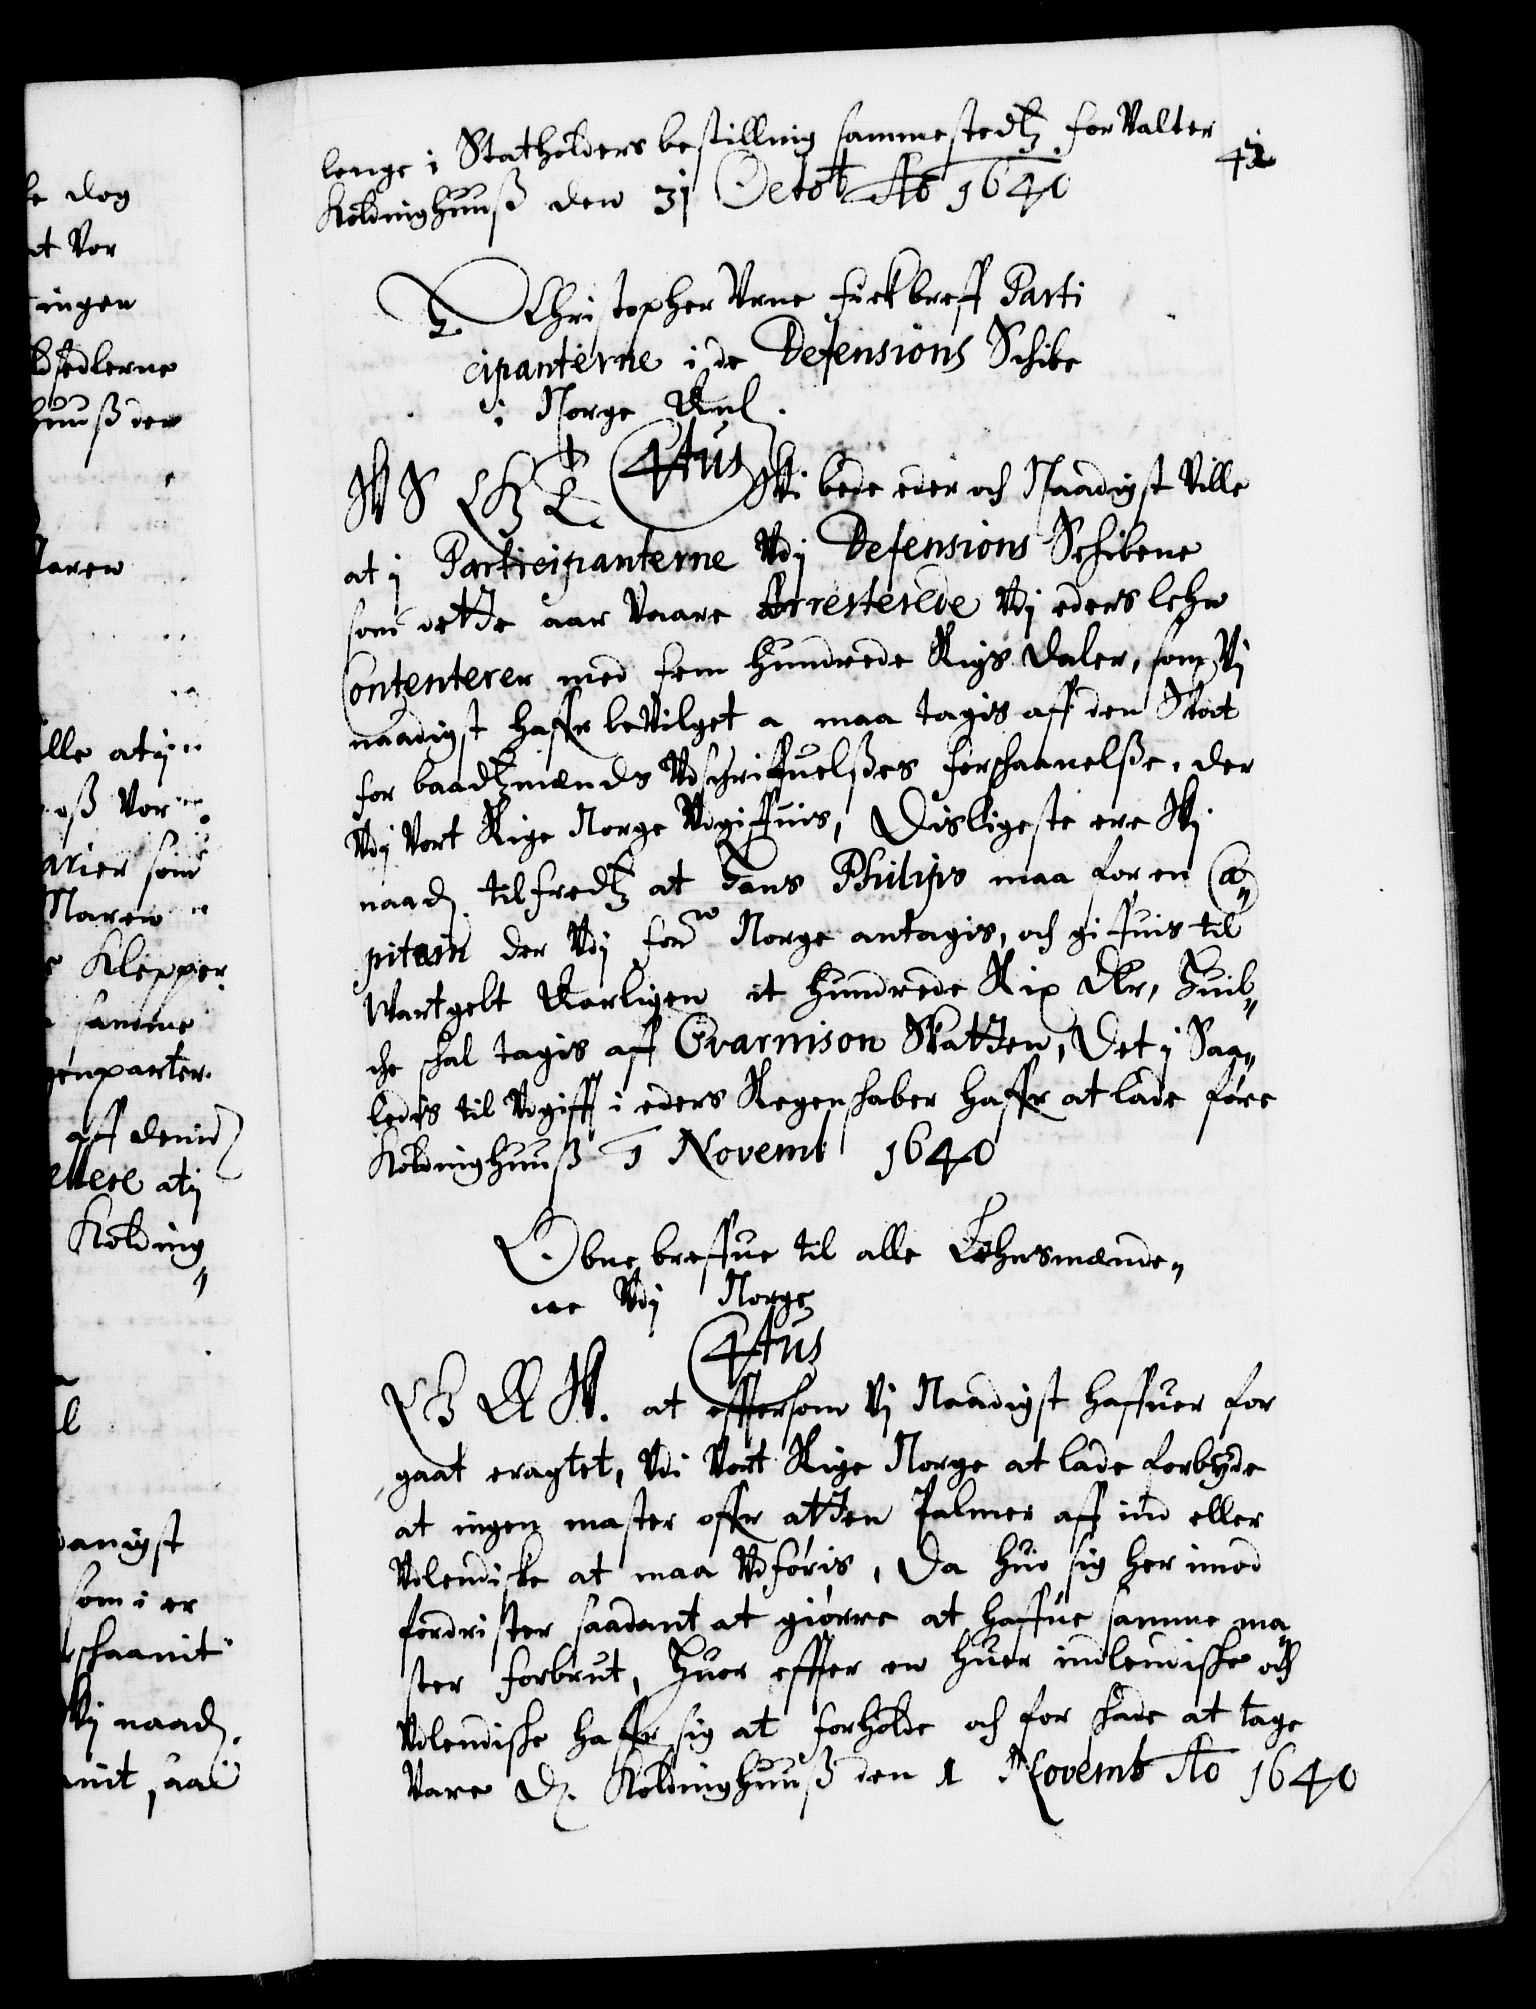 lenge i Statholders bestilling sammestedtz forValter
42
Koldinghuuß den 31 Octob Ao 1640
H. Christopher Vrne fick breff Parti
cipanterne i de Defensions Schibe
i Norge Anl.
C4tus
W S G T Wi bede eder och Naadigst Ville
at j Participanterne Vdj Defensions Schibene
som dette aar Vaare Arresterede Vdj eders lehn
Contenterer med fem hundrede Rigs daler, som Vj
naadigst haffr beVilget a maa tagis aff den Skat
for baadtzmænds Vdschriffuelßes forschaanelße, der
Vdj Vort Rige Norge Vdgiffuis, Disligeste ere Wj
naad. tilfredtz at Hans Philips maa for en Ca„
pitain der Vdj forne Norge antagis, och giffuis til
Wartgelt Aarligen it hundrede Rix dlr, Huil„
che schal tagis aff Gvarnison Skatten, Det j Saa„
ledis til Vdgifft i eders Regenschaber haffr at lade føre
Koldinghuuß 1 Novemb 1640
Obne breffue til alle Lehnsmænde„
ne Vdj Norge
C4tus
G A W. at effterson Vj Naadigst haffuer for
gaat eragtet, Vdi Vort Rige Norge at lade forbyde
at ingen master offr atten Palmer aff ind eller
Vdlendiske at maa Vdføris, Da huo sig her imod
fordrister saadant at giørre at haffue samme ma
ster forbrut, Huor effter en huer indlendiske och
Vdlendiske haffr sig at forholde och for skade at tage
Vare D. Koldinghuuß den 1 Novemb Ao 1640
dog
at Vor
ingen
sedlerne
huuß den
Maren
ille atj
oß Vor
arier som
Maren
Klepper
samme
genparter.
aff denid
ellere atj
Kolding„
danigst
som i er
schaanit
Vj naad.